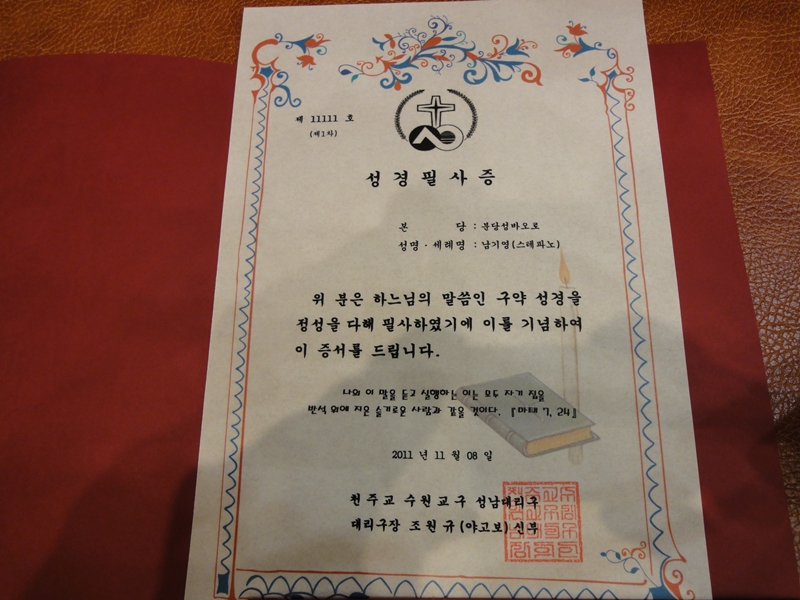 제 11111 호
(제1차)
성경필사증
본 당 : 분당성바오로
성명·세례명 : 남기영(스테파노)
위 분은 하느님의 말씀인 구약 성경을
정성을 다해 필사하였기에 이를 기념하여
이 증서를 드립니다.
나의 이 말을 듣고 실행하는 이는 모두 자기 집을
반석 위에 지은 슬기로운 사람과 같을 것이다. 『마태 7, 24』
2011 년 11 월 08 일
천주교 수원교구 성남대리구
대리구장 조원규(야고보) 신부